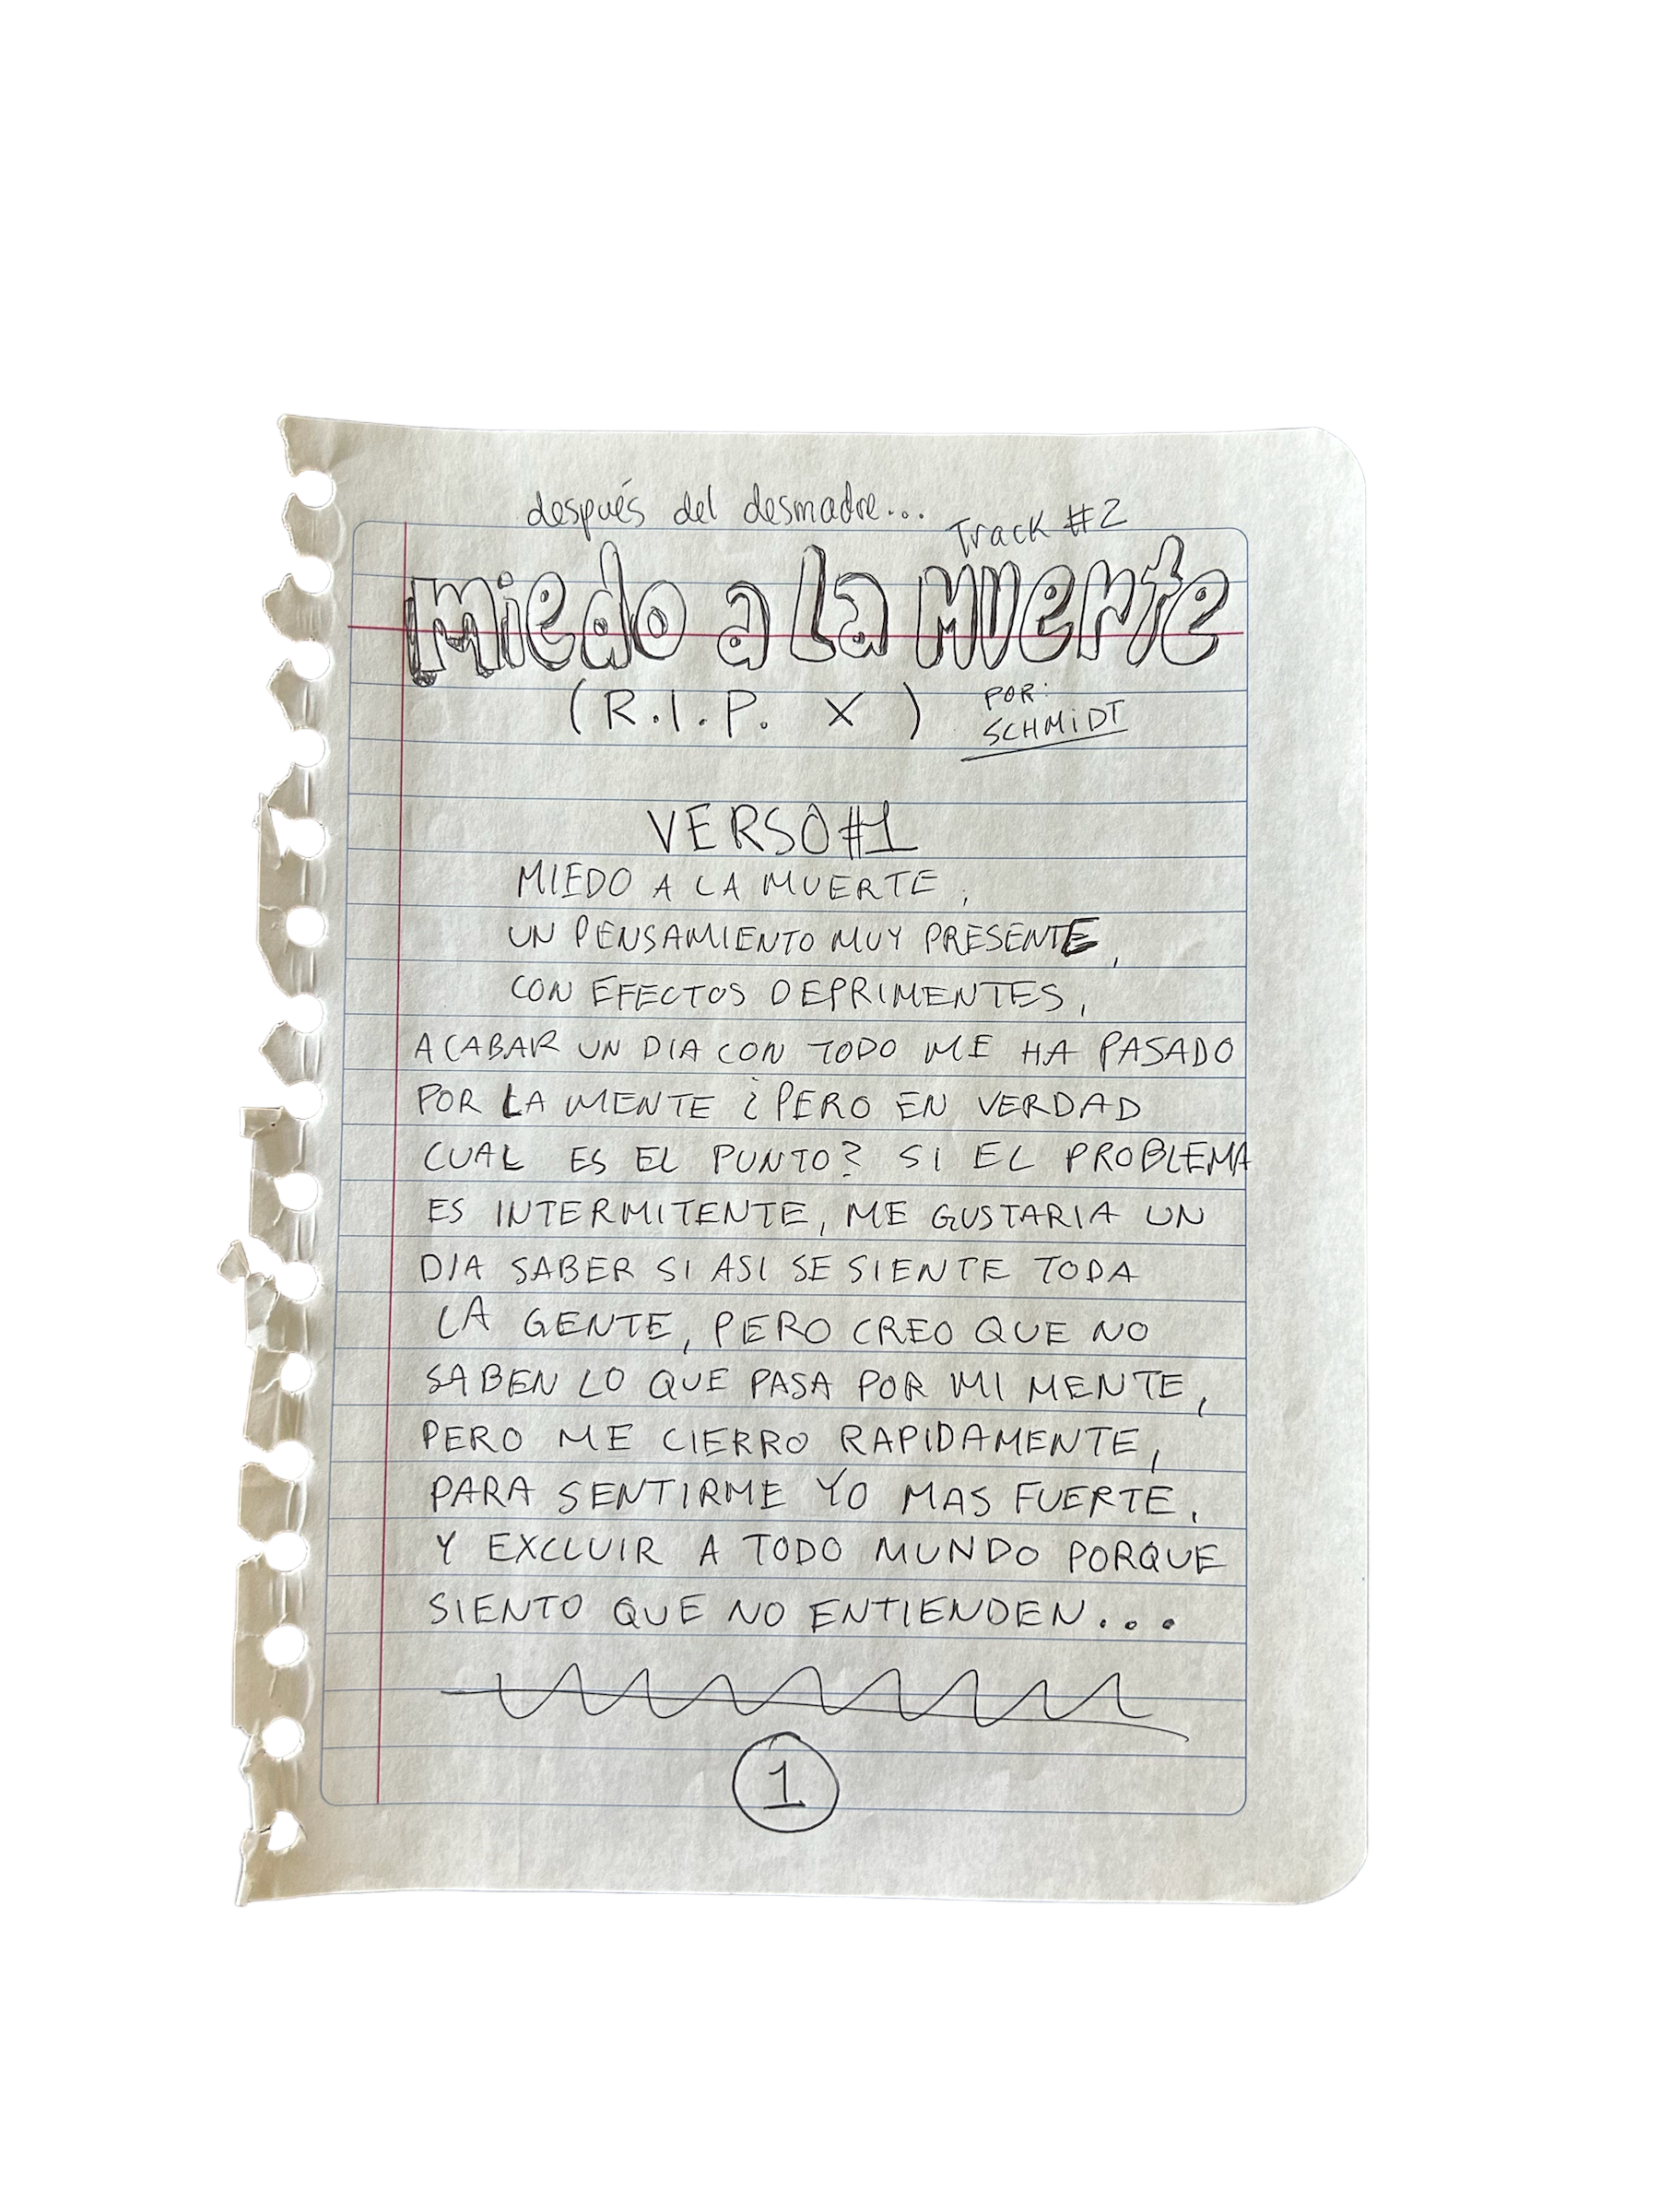 después del desmadre...
Track #2
miedo a la muerte
(R.I.P. X)
POR:
SCHMIDT
VERSO #1
MIEDO A LA MUERTE,
UN PENSAMIENTO MUY PRESENTE,
CON EFECTOS DEPRIMENTES,
ACABAR UN DIA CON TODO ME HA PASADO
POR LA MENTE ¿PERO EN VERDAD
CUAL ES EL PUNTO? SI EL PROBLEMA
ES INTERMITENTE, ME GUSTARIA UN
DIA SABER SI ASI SE SIENTE TODA
LA GENTE, PERO CREO QUE NO
SABEN LO QUE PASA POR MI MENTE,
PERO ME CIERRO RAPIDAMENTE,
PARA SENTIRME YO MAS FUERTE,
Y EXCLUIR A TODO MUNDO PORQUE
SIENTO QUE NO ENTIENDEN...
1